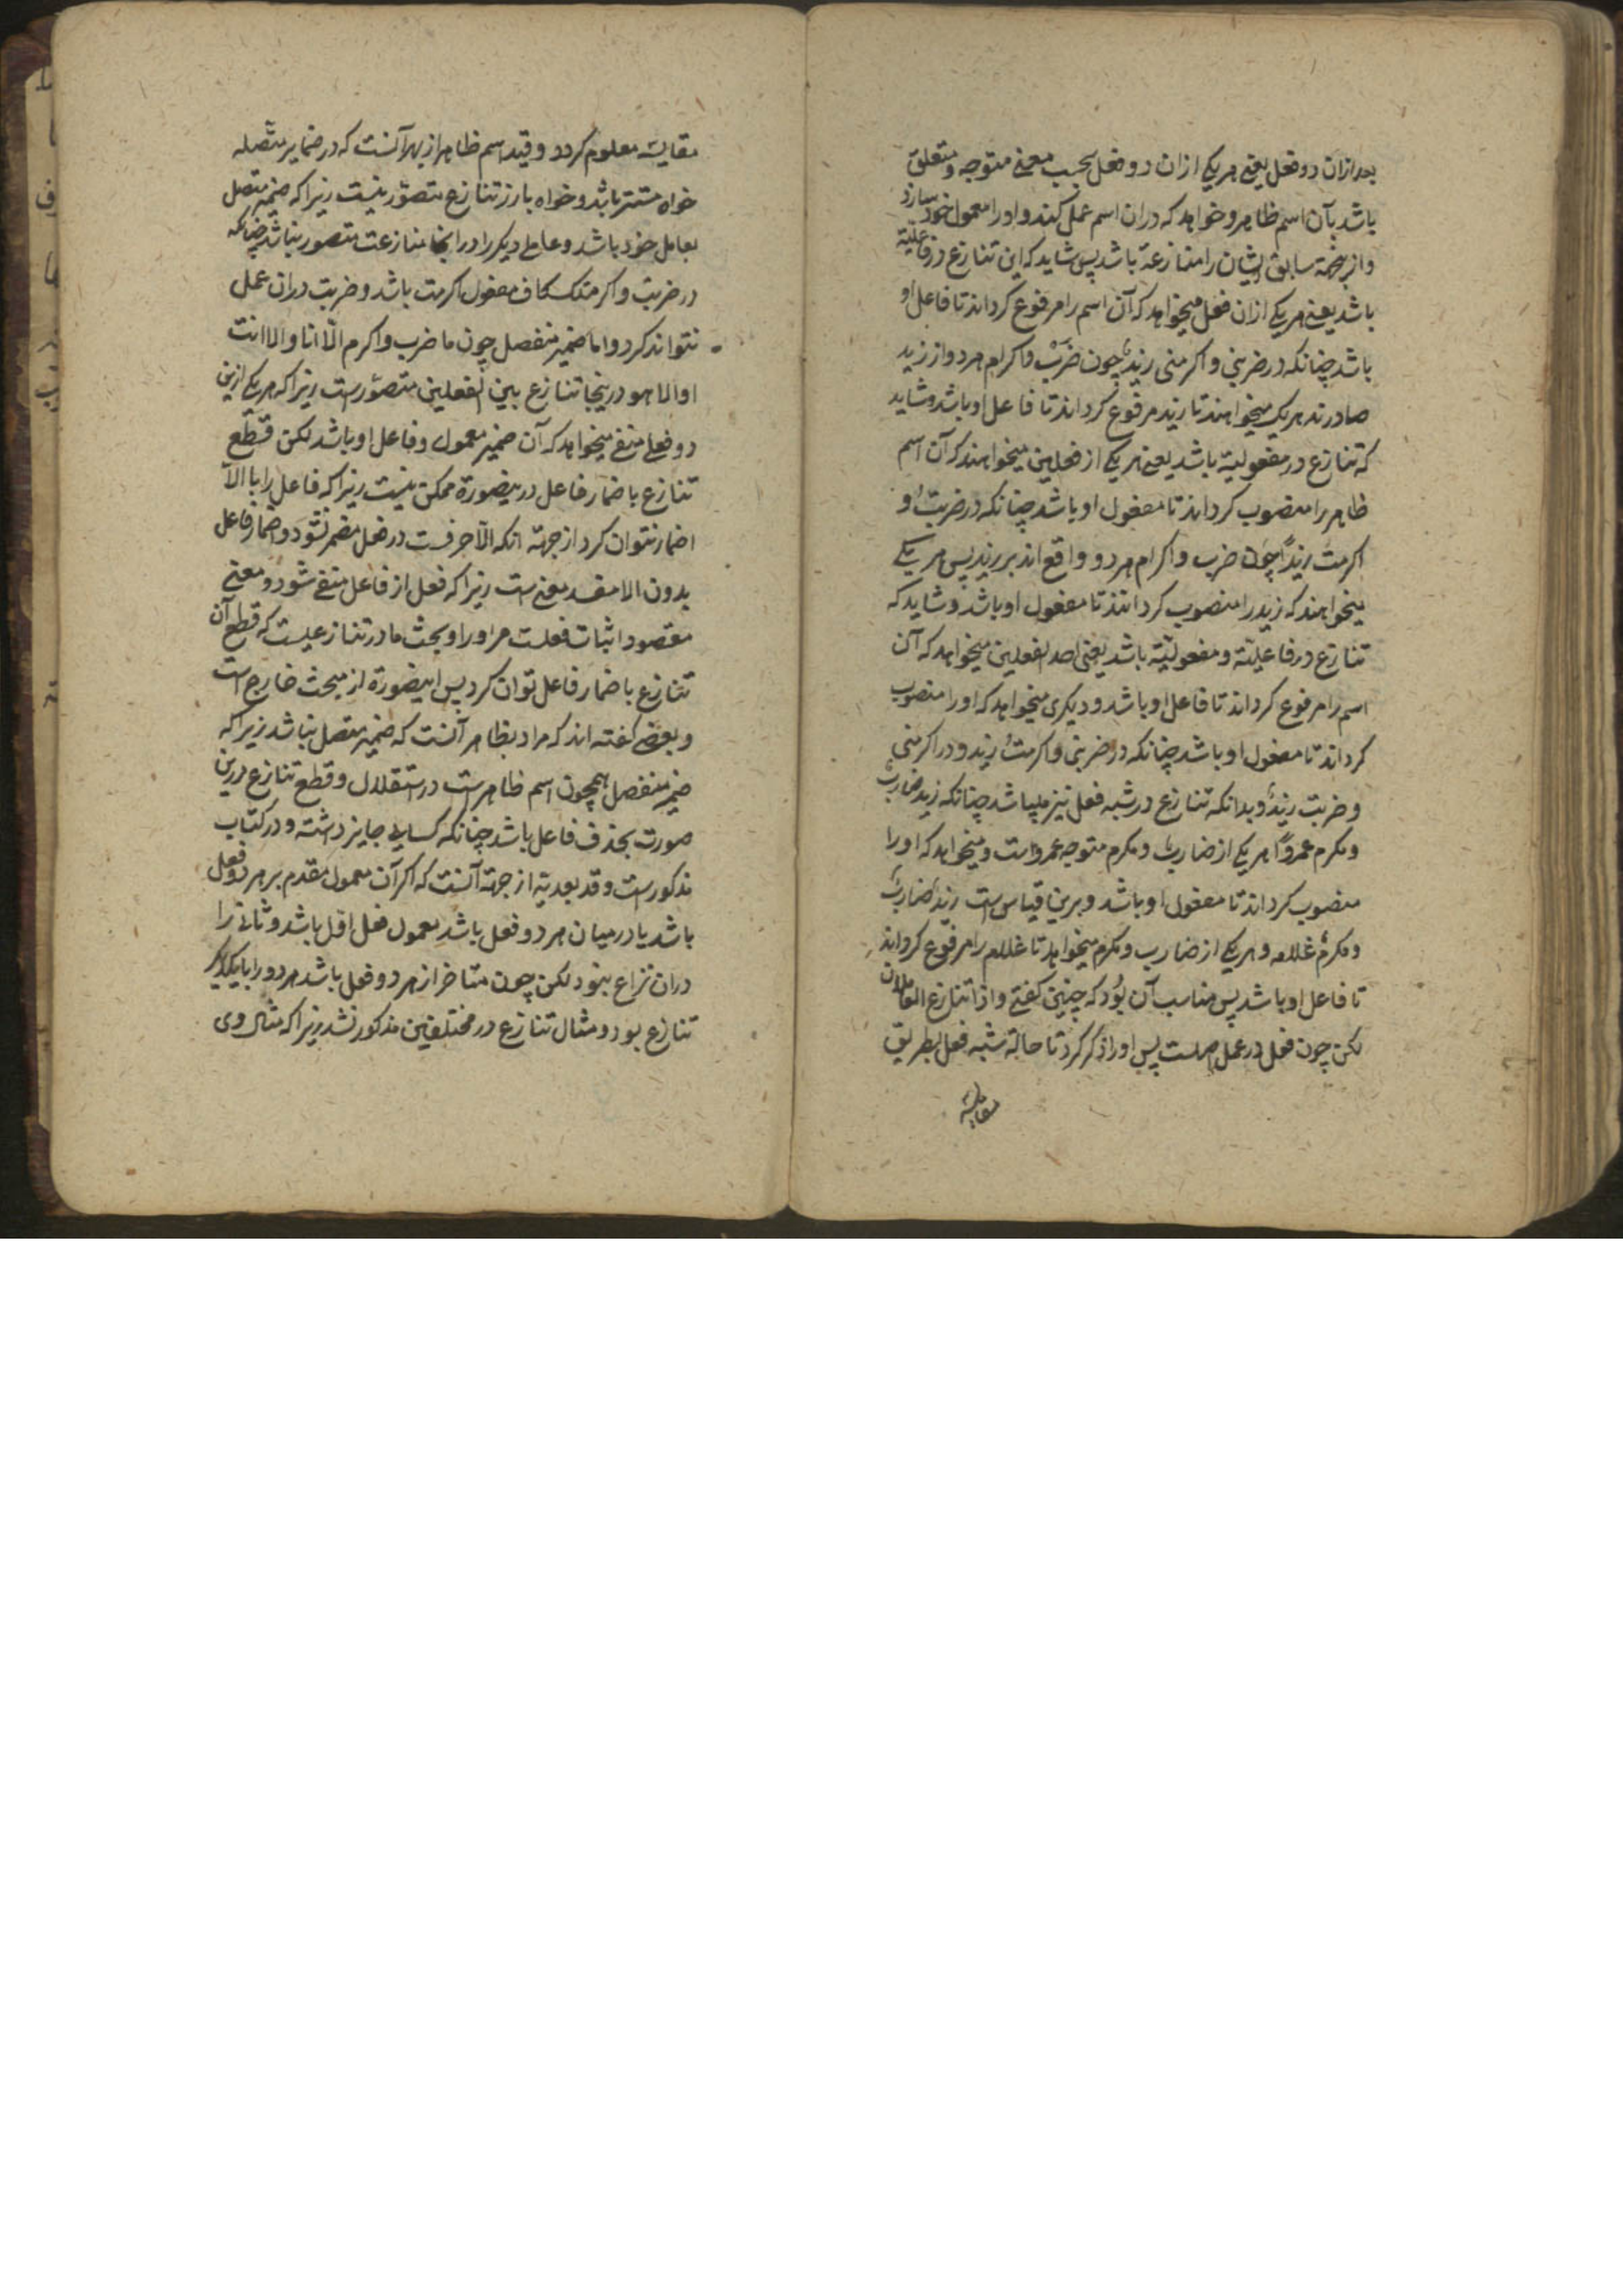 بعد ازان دو فعل یعنی هر یکی ازان دو فعل بحسب معنی متوجه و متعلق
باشد بآن اسم ظاهر و خواهد که دران اسم عمل کند و او را معمول خود سازد
و ازین جهة سابق ایشان را منازعة باشد پس شاید که این تنازع در فاعلیة
باشد یعنی هر یکی ازان فعل میخواهد که آن اسم را مرفوع کرداند تا فاعل او
باشد چنانکه در ضربنی و اکرمنی زیدٌ چون ضَرْب و اکرام هر دو از زید
صادرند هر یک میخواهند تا زید مرفوع کردانند تا فاعل او باشد و شاید
که تنازع در مفعولیة باشد یعنی هر یکی از فعلین میخواهند که آن اسم
ظاهر را منصوب کرداند تا مفعول او باشد چنانکه در ضربتُ و
اکرمت زیدًا چون ضرب و اکرام هر دو واقع اند بر زید پس هر یکی
میخواهند که زید را منصوب کردانند تا مفعول او باشد و شاید که
تنازع در فاعلیّة و مفعولیّة باشد یعنی احد الفعلین میخواهد که آن
اسم را مرفوع کرداند تا فاعل او باشد و دیکری میخواهد که او را منصوب
کرداند تا مفعول او باشد چنانکه در ضربنی و اکرمتُ زید و در اکرمنی
و ضربت زیدٌ و بدانکه تنازع در شبه فعل نیز میباشد چنانکه زید ضاربٌ
و مکرم عمروًا هر یکی از ضارب و مکرم متوجه عمرو است و میخواهد که او را
منصوب کرداند تا مفعول او باشد و برین قیاس است زیدٌ ضاربٌ
و مکرمٌ غلامه و هر یکی از ضارب و مکرم میخواهد تا غلام را مرفوع کرداند
تا فاعل او باشد پس مناسب آن بُود که چنین کفتی و اذا تنازع العاملان
لکن چون فعل در عمل اصلست پس او را ذکر کرد تا حالة شبه فعل بطریق
مقایسة
مقایسة معلوم کردد و قید اسم ظاهر از بهر آنست که در ضمایر متّصله
خواه مستتر باشد و خواه بارز تنازع متصوّر نیست زیرا که ضمیر متصل
بعامل خود باشد و عامل دیکر را در انجا منازعت متصور نباشد چنانکه
در ضربت و اکرمتک کاف مفعول اکرمت باشد و ضربت دران عمل
نتواند کرد و اما ضمیر منفصل چون ما ضرب و اکرم الّا انا و الا انت
او الا هو درینجا تنازع بین الفعلین متصوّرست زیرا که هر یکی ازین
دو فعل منفی میخواهد که آن ضمیر معمول و فاعل او باشد لکن قطع
تنازع باضمار فاعل درینصورة ممکن نیست زیرا که فاعل را با الّا
اضمار نتوان کرد از جهة انکه الّا حرفست در فعل مضمر نشود و اضمار فاعل
بدون الا مفسد معنی ست زیرا که فعل از فاعل منفی شود و معنی
مقصود اثبات فعلست مر او را و بحث ما در تنازعیست که قطع آن
تنازع باضمار فاعل توان کرد پس اینصورة از مبحث خارج است
و بعضی کفته اند که مراد بظاهر آنست که ضمیر متصل نباشد زیرا که
ضمیر منفصل همچون اسم ظاهرست در استقلال و قطع تنازع درین
صورت بحذف فاعل باشد چنانکه کسایی جایز داشته و در کتاب
مذکورست و قید بعدیة از جهة آنست که اکر آن معمول مقدم بر هر دو فعل
باشد یا در میان هر دو فعل باشد معمول فعل اوّل باشد و ثانی را
دران نزاع نبود لکن چون متاخر از هر دو فعل باشد هر دو را با یکدیکر
تنازع بود و مثال تنازع در مختلفین مذکور نشد زیرا که مثال وی